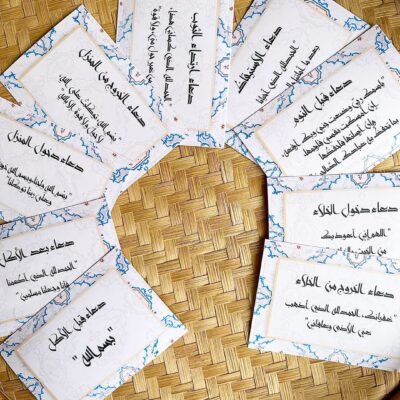 دعاء الاستيقاظ
"الحمد لله الذي أحيانا
بعد ما أماتنا
دعاء قبل النوم
"باسمك ربي وضعت جنبي وبك أرفعه،
إن أمسكت نفسي فارحمها،
وإن أرسلتها فاحفظها
بما تحفظ به عبادك الصالحين
دعاء دخول الخلاء
"اللهم إني أعوذ بك
من الخبث
دعاء الخروج من الخلاء
"غفرانك، الحمد لله الذي أذهب
عني الأذى وعافاني"
دعاء ارتداء الثوب
"الحمد لله الذي كساني هذا،
من غير حول مني ولا قوة"
دعاء الخروج من المنزل
"بسم الله توكلت على الله
لا حول ولا قوة إلا بالله"
دعاء دخول المنزل
"بسم الله ولجنا وبسم الله
وعلى ربنا توكلنا"
دعاء بعد الأكل
"الحمد لله الذي أطعمنا
وسقانا وجعلنا مسلمين"
دعاء قبل الأكل
"بسم الله"